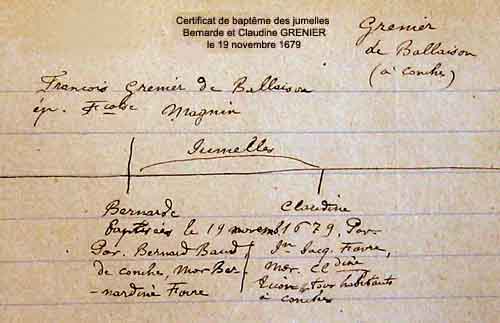 Certificat de baptême des jumelles
Bernarde et Claudine GRENIER
le 19 novembre 1679
Grenier
de Ballaison
(à conches)
François Grenier de Ballaison
ép. Fcoise Magnin
Jumelles
Bernarde
Claudine
baptisées le 19 novemb 1679. Par.
Par. Bernard Baud
de conche, Mar Ber-
-nardine Favre
Jn Jacq. Favre,
Mar. Cl dine
tous habitants
à conches